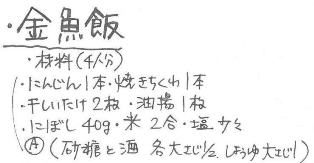 ・金魚飯
・材料(4人分)
・にんじん1本・焼きちくわ1本
・干しいたけ2枚・油揚1枚
・にぼし40g・米2合・塩少々
Ⓐ(砂糖と酒 各大さじ1/2. しょうゆ大さじ1)